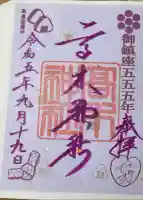 御鎮座五五五年 奉拝
高木神社
高木神社
令和五年九月十九日